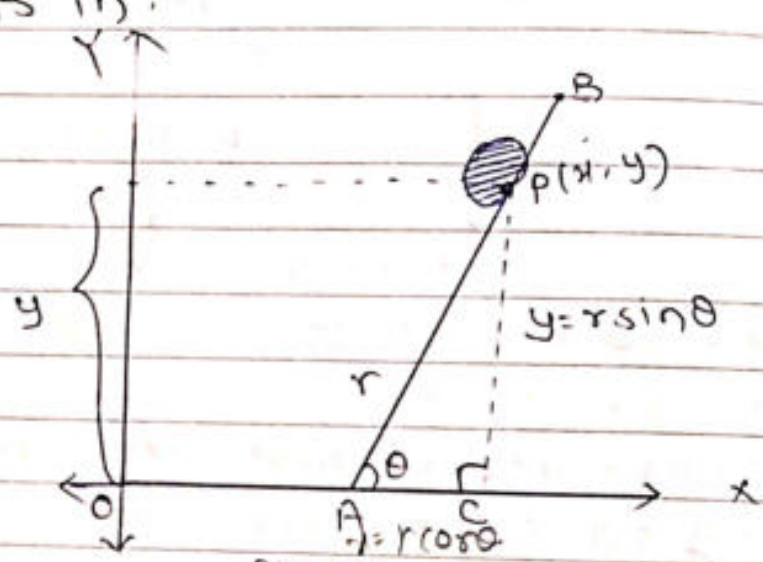 Y
B
P(x, y)
y
y=rsinθ
r
θ
O
A
C
x
=rcosθ